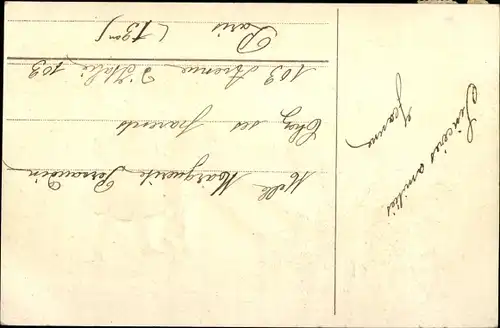 Sincères amitiés
Jeanne
Melle Marguerite Perraudin
Chez ses parents
103 Avenue d'Italie 103
Paris
(13em)